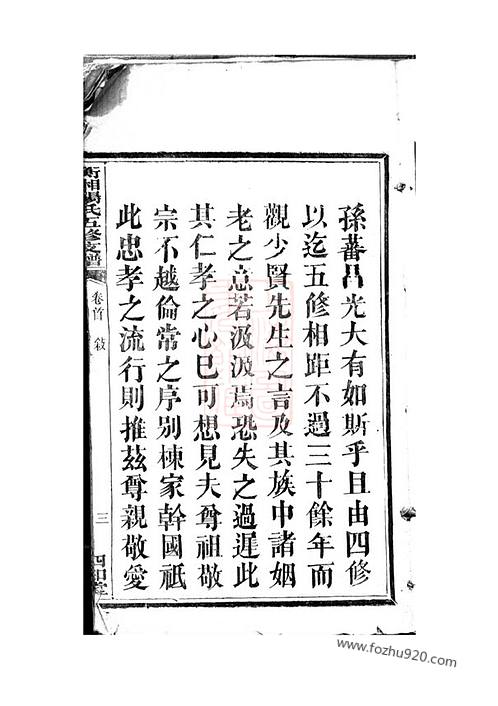 孫蕃昌光大有如斯乎且由四修
以迄五修相距不過三十餘年而
觀少賢先生之言及其族中諸姻
老之意若汲汲焉恐失之過遲此
其仁孝之心已可想見夫尊祖敬
宗不越倫常之序別棟家幹國祗
此忠孝之流行則推茲尊親敬愛
衡湘楊氏五修支譜
卷首 敘
三
四知堂
www.fozhu920.com